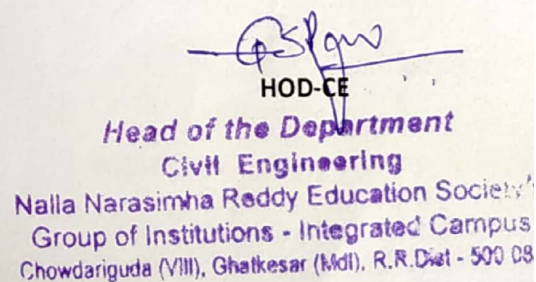 HOD-CE
Head of the Department
Civil Engineering
Nalla Narasimha Reddy Education Society's
Group of Institutions - Integrated Campus
Chowdariguda (Vill), Ghatkesar (Mdl), R.R.Dist - 500 08